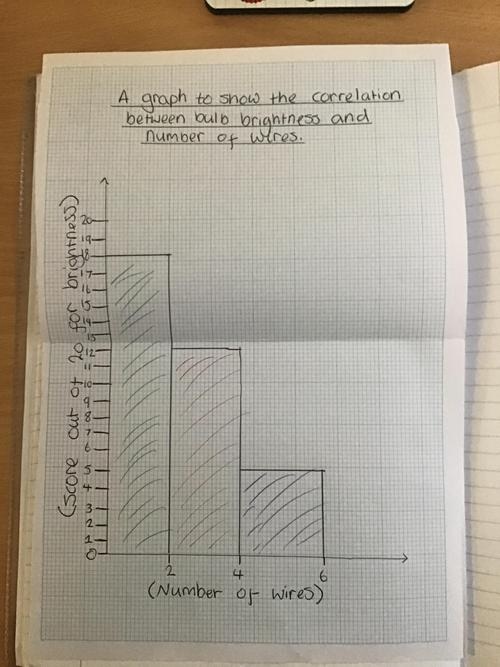 A graph to show the correlation
between bulb brightness and
number of wires.
(Score out of 20 for brightness)
20
19
18
17
16
15
14
13
12
11
10
9
8
7
6
5
4
3
2
1
0
2 4 6
(Number of wires)